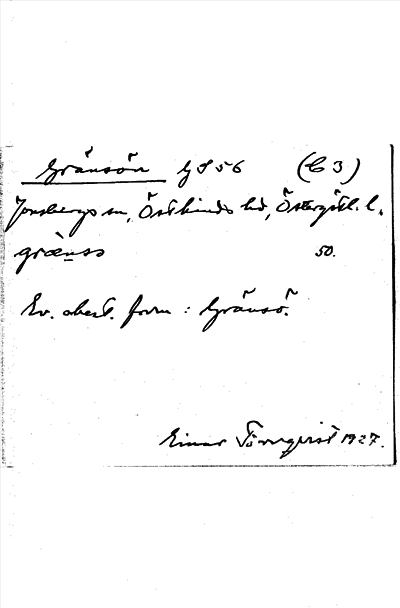 Gränsön GS 56 (C 3)
Jonsbergs sn, Östkinds hd, Östergötl. l.
grænsö 50.
Ev. obest. form : Gränsö.
Einar Törnqvist 1927.